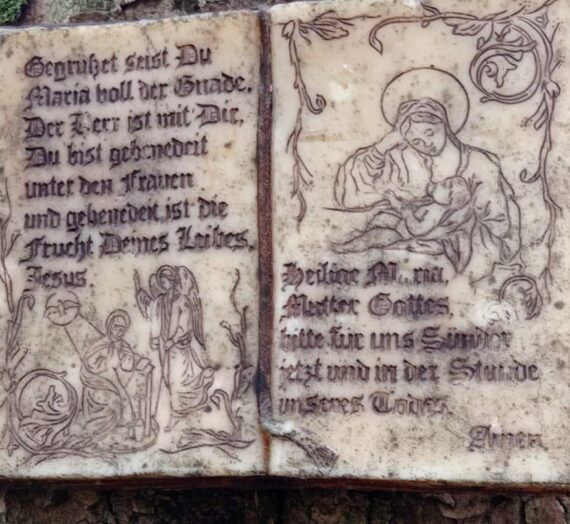 Gegrüßet seist Du
Maria voll der Gnade,
Der Herr ist mit Dir,
Du bist gebenedeit
unter den Frauen
und gebenedeit ist die
Frucht Deines Leibes,
Jesus.
Heilige Maria,
Mutter Gottes,
bitte für uns Sünder
jetzt und in der Stunde
unseres Todes.
Amen